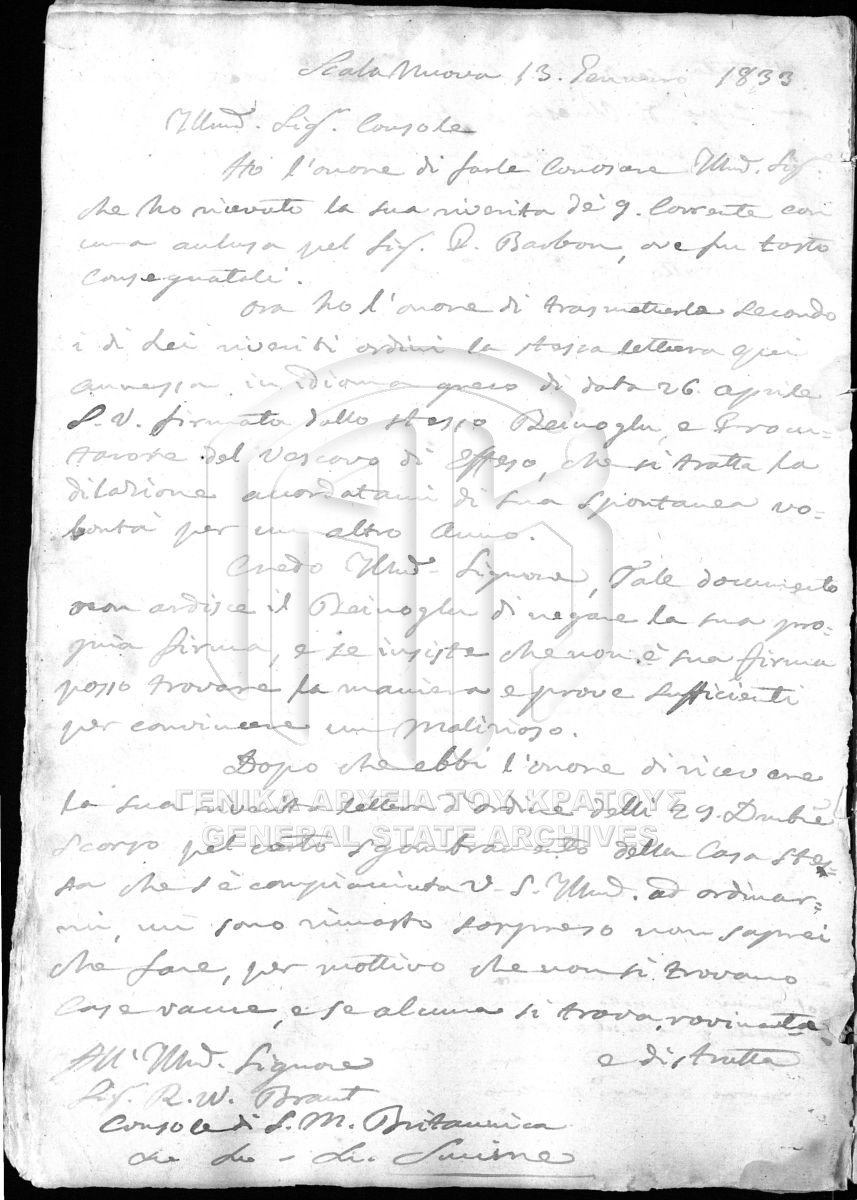 Scala Nuova 13. Gennaro 1833
Illmo. Sigr. Console
Ho l'onore di farle Conoscere Illmo. Sigr.
che ho ricevuto la sua riverita de' 9. Corrente con
una aclusa pel Sig. D. Barbon, ove fu tosto
Consegnatali.
Ora ho l'onore di trasmetterle Secondo
i di Lei riveriti ordini la stessa lettera qui
annessa in idioma greco di data 26 aprile
S. V. firmata dallo stesso Beinoglu, e Procu-
ratore del Vescovo di Effeso, che si tratta la
dilazione accordatami di sua spontanea vo-
lontà per un altro Anno.
Credo Illmo. Signore, Tale documento
non ardisce il Beinoglu di negare la sua pro-
pria firma, e se insiste che non è sua firma
posso trovare la maniera e prove sufficienti
per convincere un Malizioso.
Dopo che ebbi l'onore di ricevere
la sua riverita lettera d'ordine delli 29. Dmbre
Scorso pel certo sgombramento della Casa stes-
sa che s'è compiaciuta V. S. Illmo. ad ordinar-
mi, mi sono rimasto sorpreso non saprei
che fare, per mottivo che non si trovano
Case vacue, e se alcuna si trova, rovinata
e distrutta
All' Illmo. Signore
Sig. R. W. Brant
Console di S. M. Britannica
Smirne
ΓΕΝΙΚΑ ΑΡΧΕΙΑ ΤΟΥ ΚΡΑΤΟΥΣ
GENERAL STATE ARCHIVES